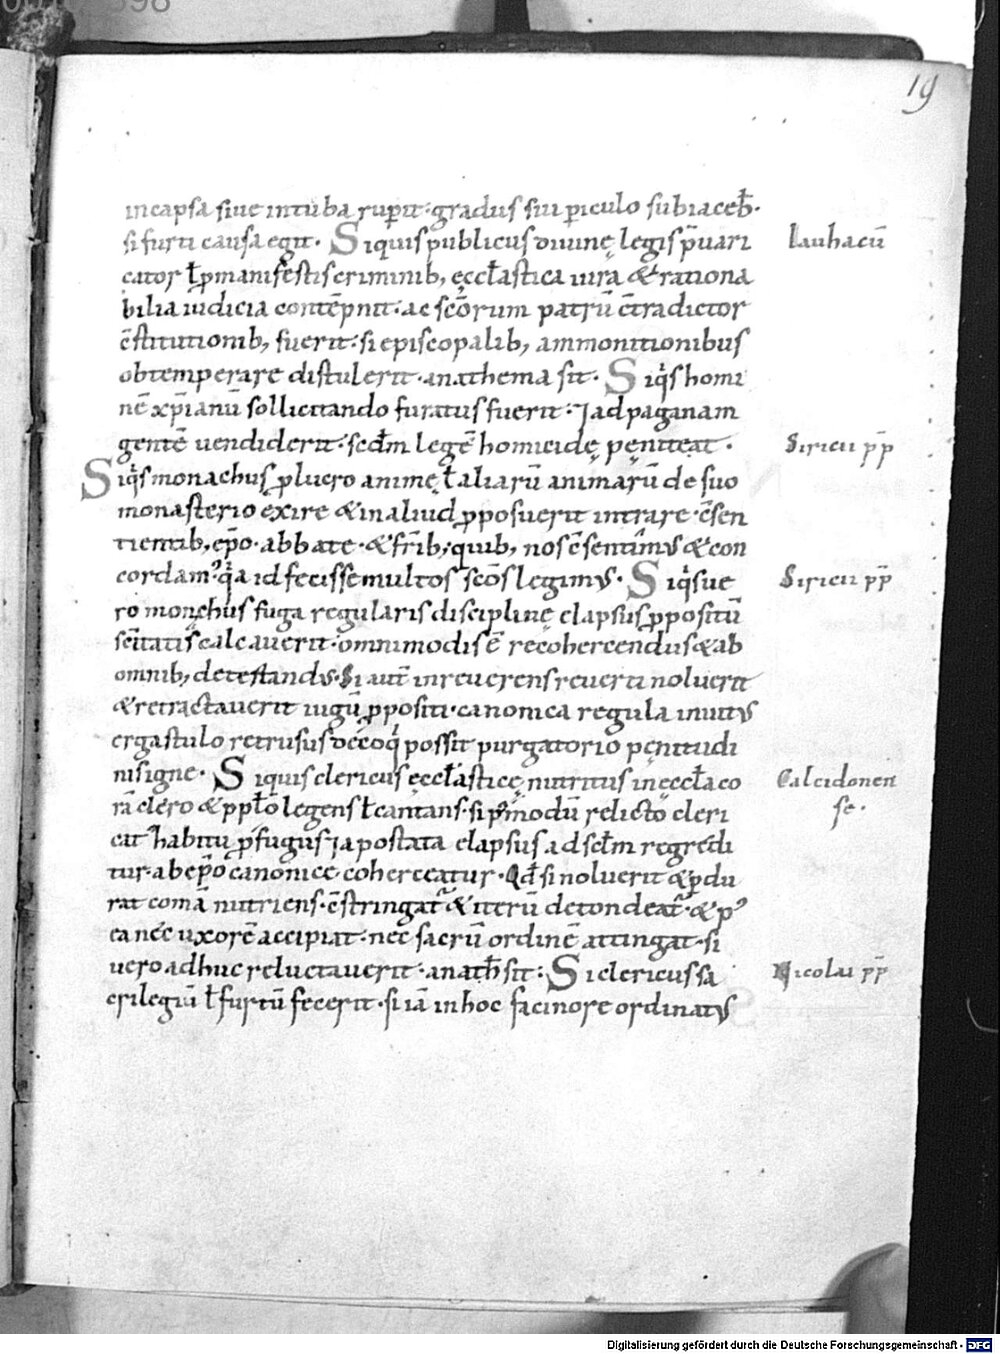 19
incapsa siue intuba ruperit· gradus sui ꝑiculo subiaceb̄·
si furti causa egit· Siquis publicus diuinę legis p̄uari
lauhacū
cator ł ꝑmanifestis criminib; ęccƚastica iura & rationa
bilia iudicia contēpnit· ac scōrum patrū c̄tradictor
c̄stitutionib; fuerit· si episcopalib; ammonitionibus
obtemperare distulerit· anathema sit· Siqͥs homi
nē xp̄ianū sollicitando furatus fuerit· ⁊ ad paganam
gentē uendiderit· scđm legē homicidę pęniteat·
Siricii pp̄
Siqͥs monachus ꝓ lucro animę ł aliarū animarū de suo
monasterio exire & in aliud ꝓposuerit intrare· c̄sen
tientib; ep̄o· abbate· & fr̄ib; quib; nos c̄sentimꝰ & con
cordamꝰ· qͥa id fecisse multos scōs legimꝰ· Siqͥs ue
Siricii pp̄
ro monchus fuga regularis disciplinę elapsus ꝓpositū
sc̄itatis calcauerit· omnimodis ē recohercendus & ab
omnib; detestandꝰ· Si aut̄ inreuerens reuerti noluerit
& retractauerit iugū ꝓpositi· canonica regula inuitꝰ
ergastulo retrusus decoqͥ possit purgatorio pęnitudi
nis igne· Siquis clericus ęccƚasticę nutritus in ęccƚa co
Calcidonen
se·
rā clero & ppƚo legens ł cantans· si p̄modū relicto cleri
cat habitu ꝓfugus· ⁊ apostata elapsus ad scƚm regredi
tur· ab ep̄o canonice coherceatur· Qđ si noluerit & ꝑdu
rat comā nutriens· c̄stringat᷑ & iterū detondeat᷑· & pꝰ
ea nec uxorē accipiat· nec sacrū ordinē attingat· si
uero adhuc reluctauerit· anath̄ sit: Si clericus sa
Nicolai pp̄
crilegiū ł furtū fecerit· si iā in hoc facinore ordinatꝰ
Digitalisierung gefördert durch die Deutsche Forschungsgemeinschaft - DFG